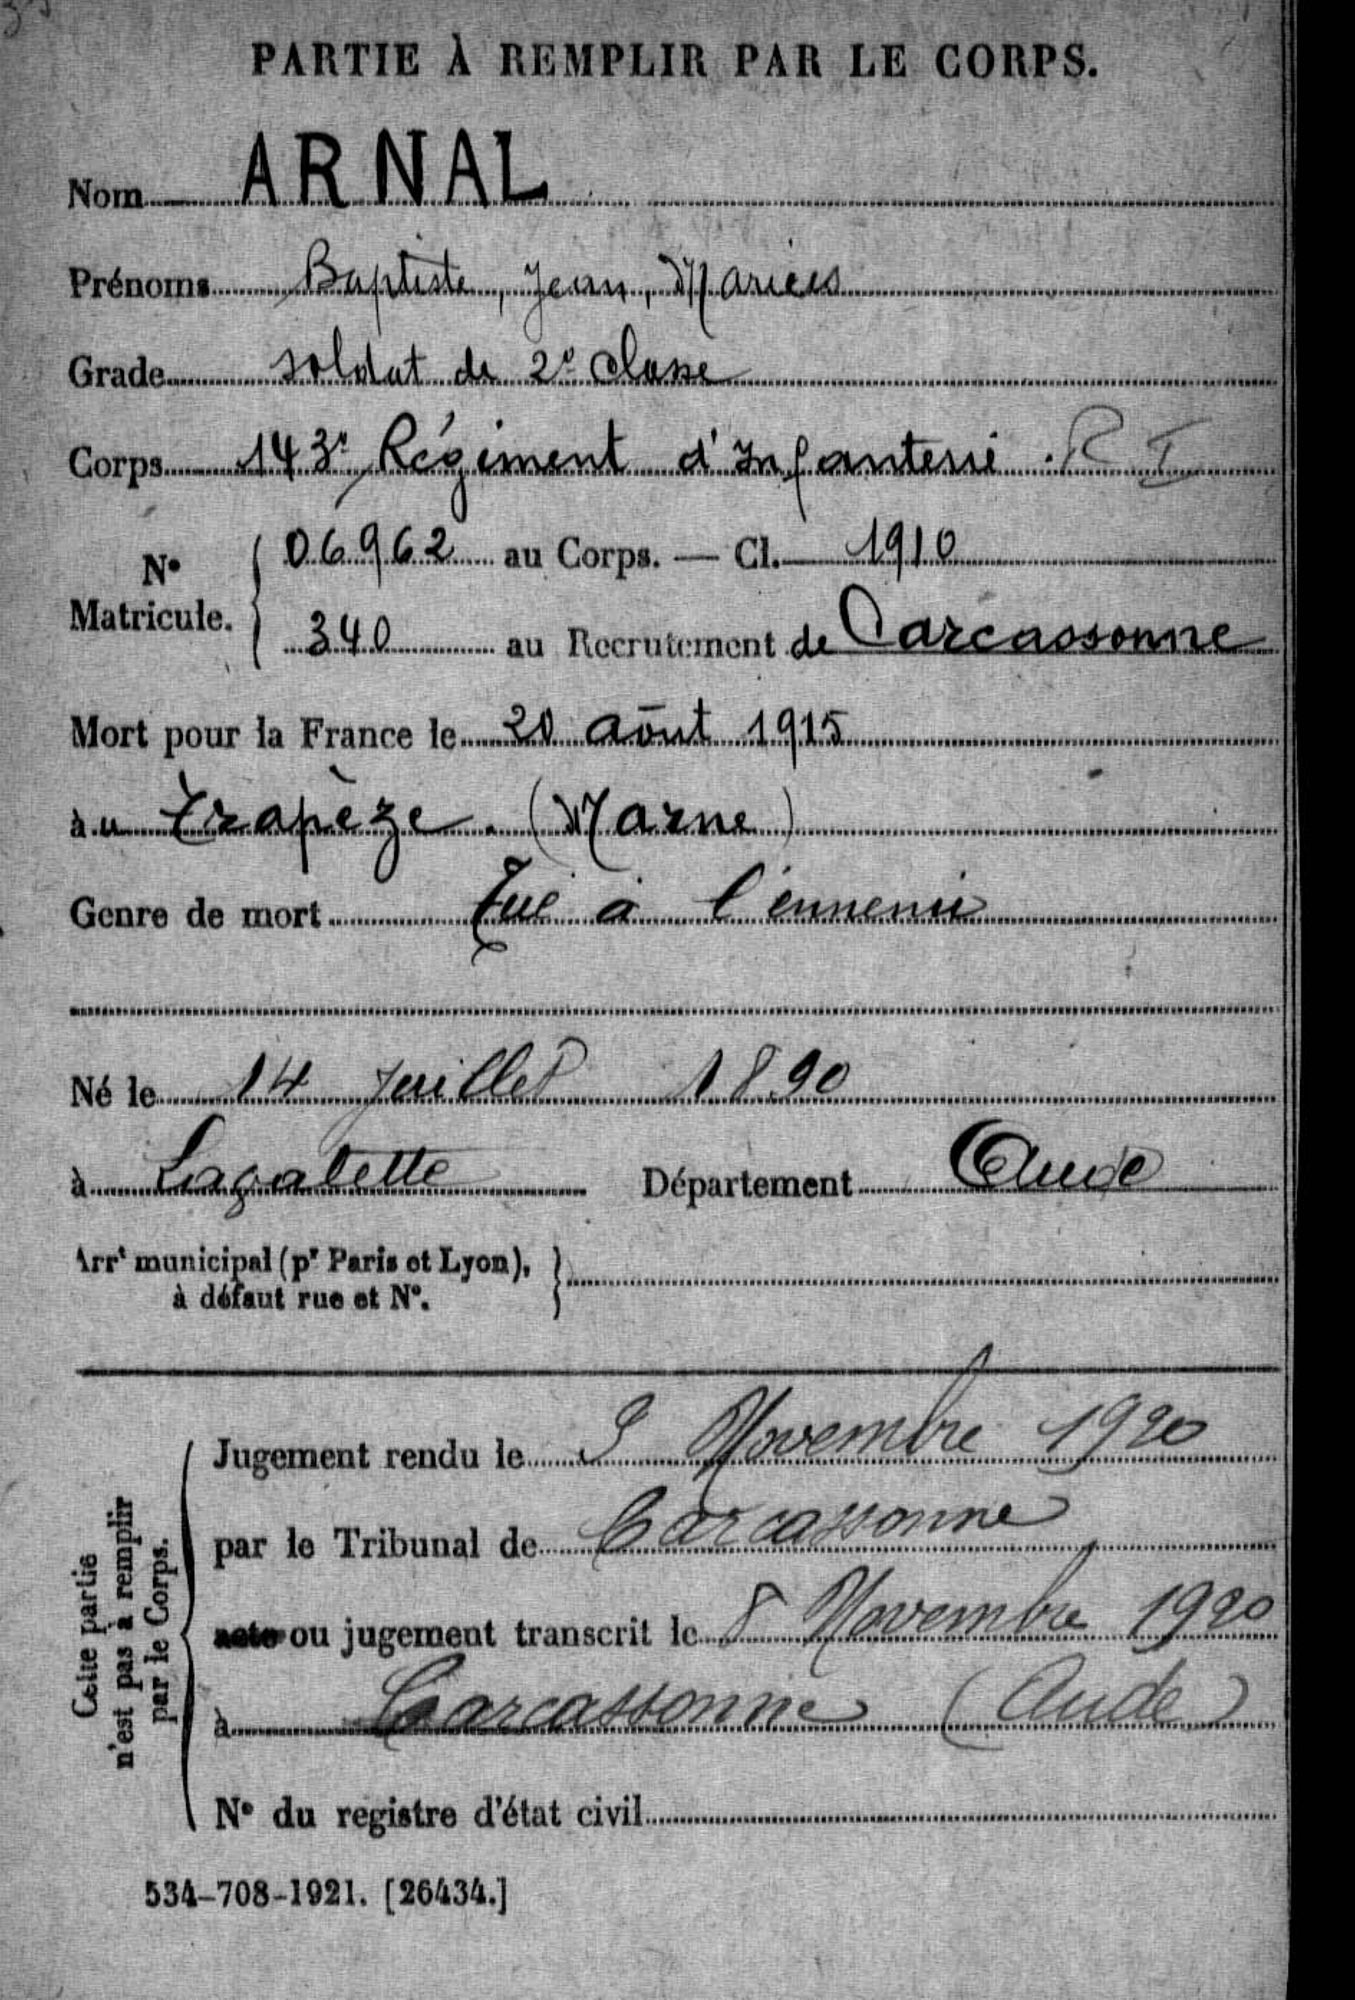 PARTIE À REMPLIR PAR LE CORPS.
Nom ARNAL
Prénoms Baptiste, Jean, Marius
Grade soldat de 2e classe
Corps 143e Régiment d'Infanterie. R I
No Matricule. { 06962 au Corps. — Cl. 1910
340 au Recrutement de Carcassonne
Mort pour la France le 20 août 1915
au Trapèze. (Marne)
Genre de mort Tué à l'ennemi
Né le 14 Juillet 1890
à Département Aude
Arrt municipal (pr Paris et Lyon), }
à défaut rue et No.
Cette partie
n'est pas à remplir
par le Corps.
Jugement rendu le Novembre 1920
par le Tribunal de Carcassonne
acte ou jugement transcrit le 8 Novembre 1920
à Carcassonne (Aude)
No du registre d'état civil
534-708-1921. [26434.]